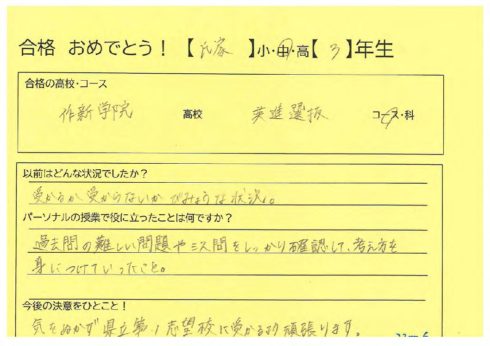 合格 おめでとう！ 【 氏家 】小・中・高【 3 】年生
合格の高校・コース
作新学院 高校 英進選抜 コース・科
以前はどんな状況でしたか？
受かるか受からないかびみょうな状況。
パーソナルの授業で役に立ったことは何ですか？
過去問の難しい問題やミス問をしっかり確認して、考え方を
身につけていったこと。
今後の決意をひとこと！
気をぬかず県立第1志望校に受かるよう頑張ります。